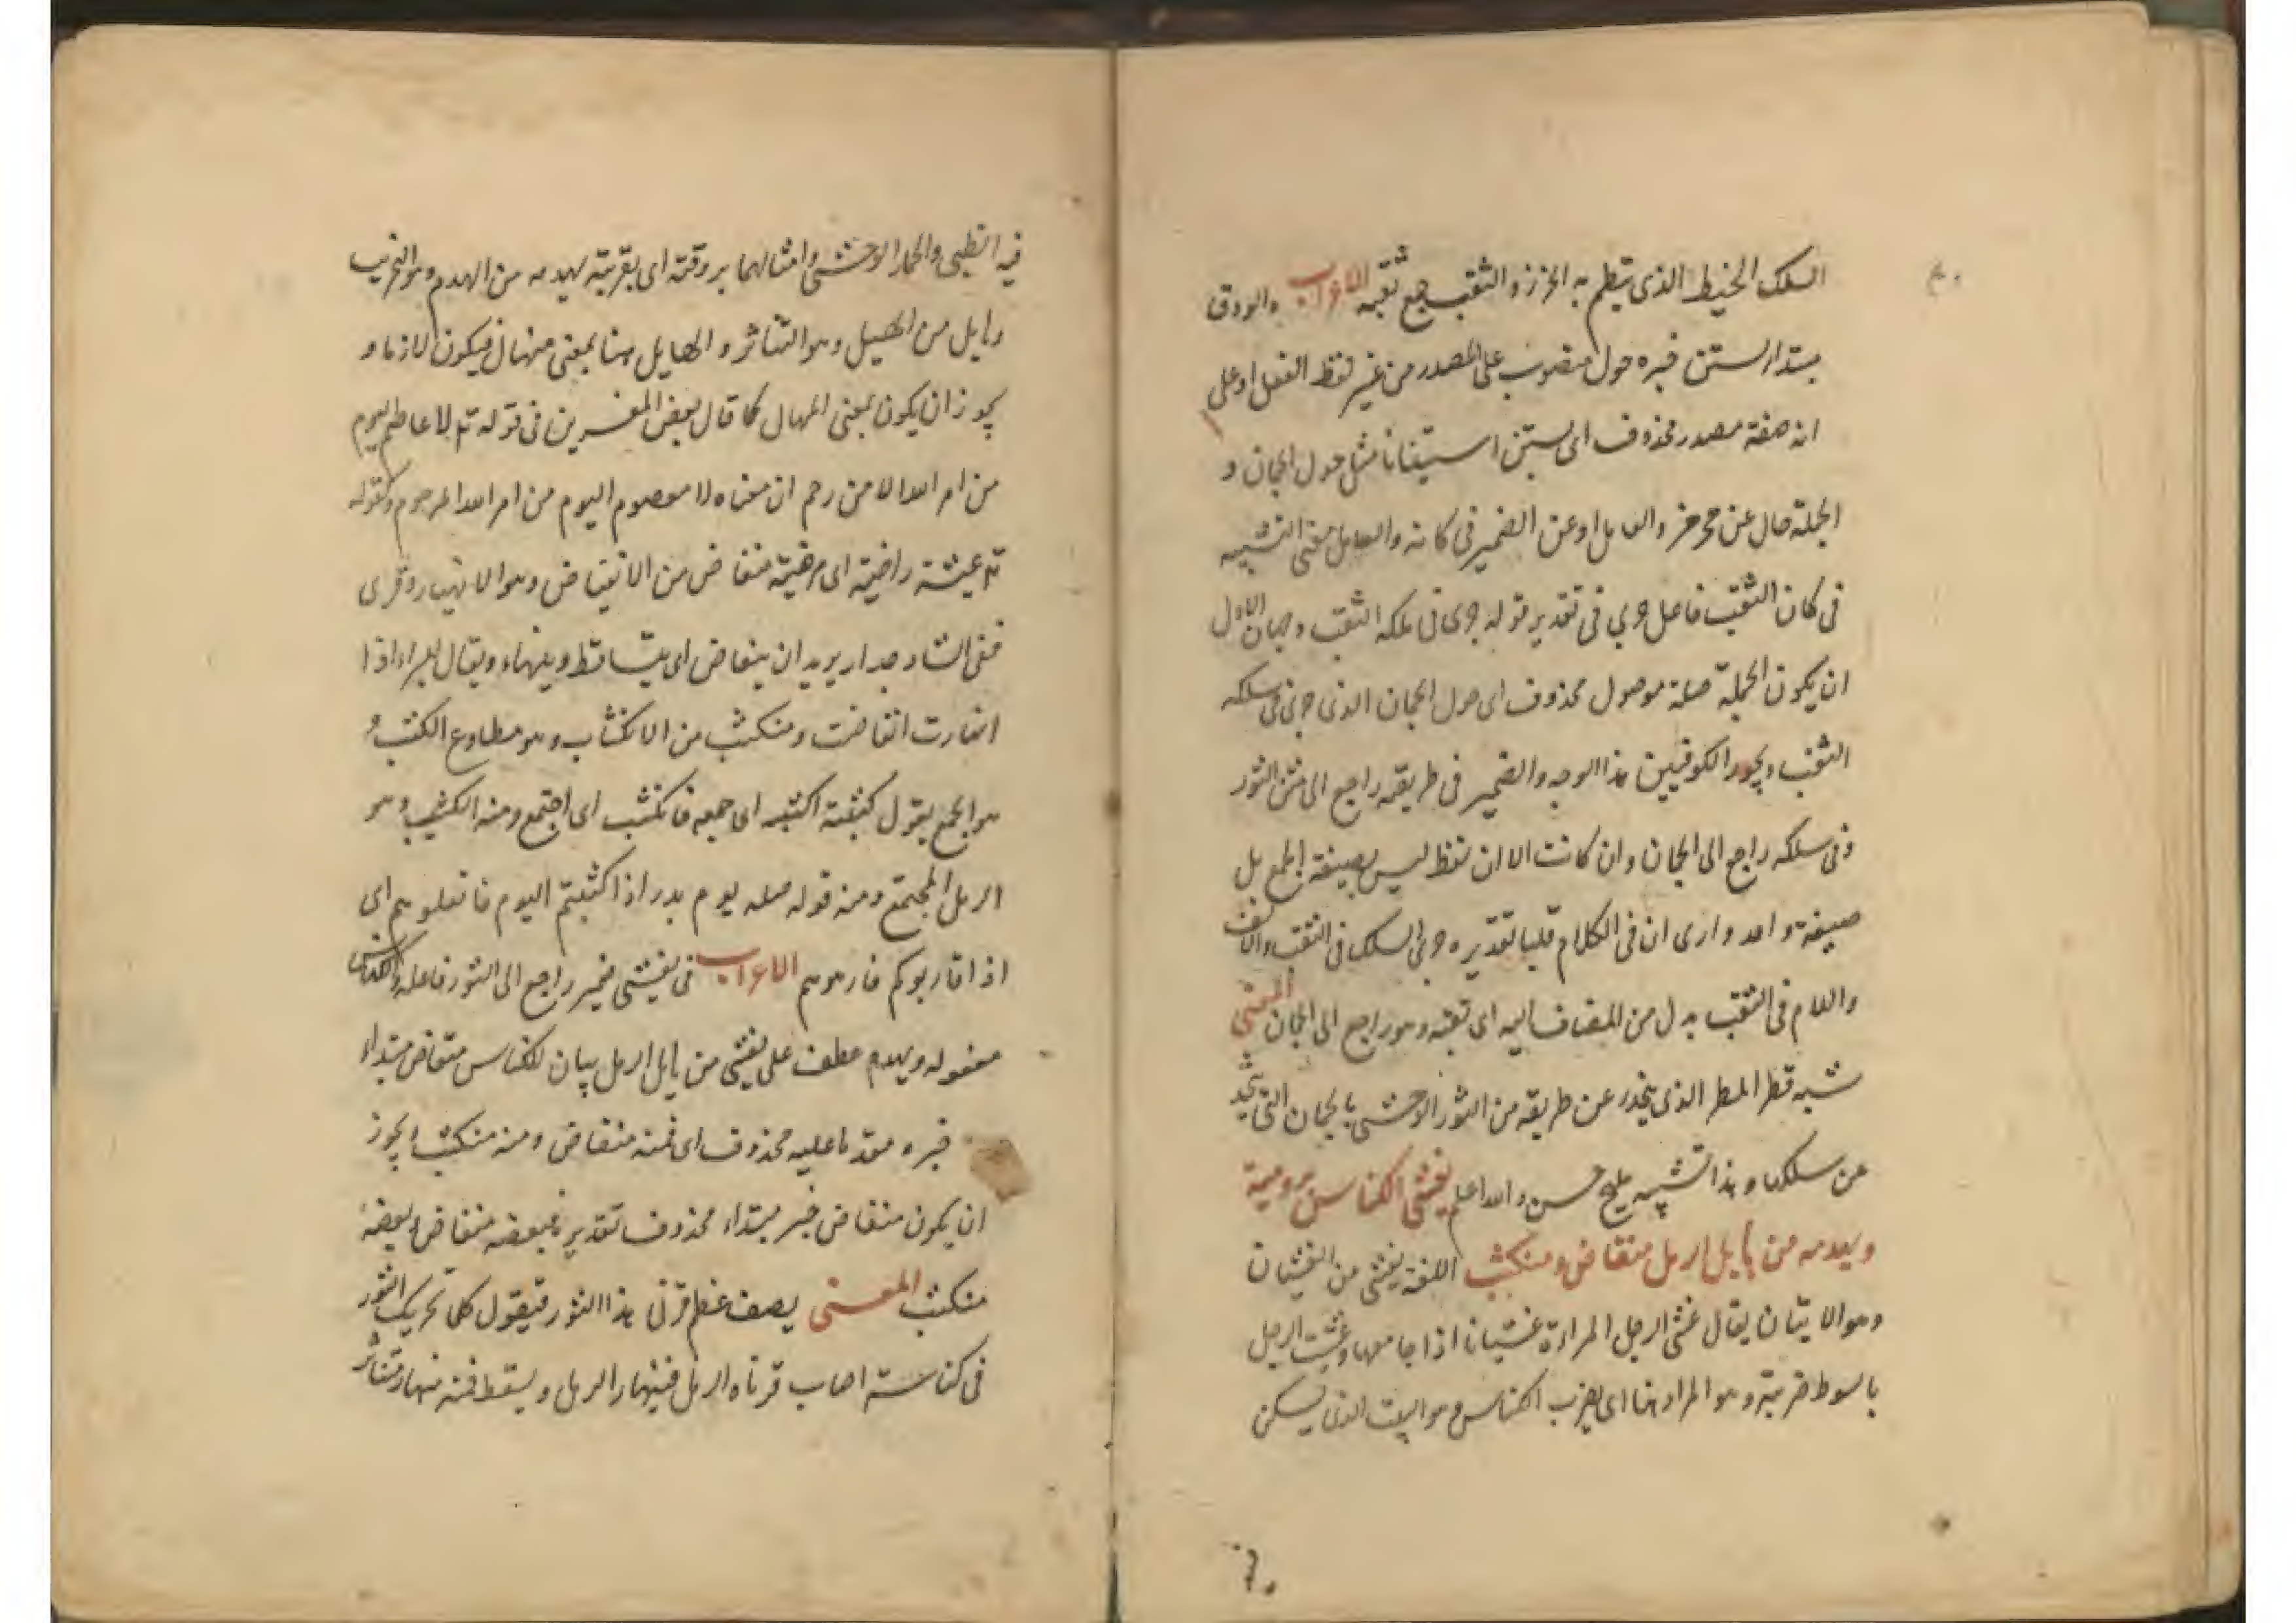 السلك الخيط الذى ينظم به الخرز والثقب جمع ثقبة الاعراب والودق
مبتدا يستن خبره حول منصوب على المصدر من غير لفظ الفعل او على
انه صفة مصدر محذوف اى يستن استنانا مثل حول الجمان و
الجملة حال عن محرمز والعامل او عن الضمير فى كانه والعامل معنى التشبيه
فى كان الثقب فاعل جرى فى تقدير قوله جرى فى سلكه الثقب وجهان الاول
ان يكون الجملة صلة موصول محذوف اى حول الجمان الذى جرى فى سلكه
الثقب ويجوز الكوفيين هذا الوجه والضمير فى طريقته راجع الى متن الثور
وفى سلكه راجع الى الجمان وان كانت الا ان لفظ ليس بصيغة الجمع بل
صيغة واحد وارى ان فى الكلام قلبا تقديره جرى السلك فى الثقب والالف
واللام فى الثقب بدل من المضاف اليه اى ثقبه وهو راجع الى الجمان المعنى
شبه قطر المطر الذى ينحدر عن طريقه من الثور الوحشى بالجمان التى ينحد
عن سلكها وهذا تشبيه مليح حسن والله اعلم يغشى الكناس بروقيه
ويهدمه من هايل الرمل منقاض ومنكثب اللغة يغشى من الغشيان
وهو الاتيان يقال غشى الرجل المراءة غشيانا اذا جامعها وغشيت الرجل
بالسوط ضربته وهو المراد هنا اى يضرب الكناس وهو البيت الذى يسكن
فيه الظبى والحمار الوحشى وامثالهما بروقته اى بقرنيه يهدمه من الهدم وهو التخريب
وهايل من الهيل وهو التناثر و الهايل هنا بمعنى منهال فيكون لازما و
يجوز ان يكون بمعنى المهال كما قال بعض المفسرين فى قوله تع لا عاصم اليوم
من امر الله الا من رحم ان معناه لا معصوم اليوم من امر الله الا مرحوم وكقوله
تع عيشة راضية اى مرضية منقاض من الانقياض وهو الانهيار وقرى
فى الشاذ جدار يريد ان ينقاض اى يتساقط وينهار ويقال للبير اذا
انهارت انقاضت ومنكثب من الانكثاب وهو مطاوع الكثب و
هو الجمع يقول كثبته اكثبه اى جمعه فانكثب اى اجتمع ومنه الكثيب وهو
الرمل المجتمع ومنه قوله صلعم يوم بدر اذا اكثبتم اليوم فانبلوهم اى
اذا قاربوكم فارموهم الاعراب فى يغشى ضمير راجع الى الثور فاعله والكناس
مفعوله ويهدم عطف على يغشى من هايل الرمل بيان للكناس منقاض مبتداء
خبره مقدما عليه محذوف اى فمنه منقاض ومنه منكثب ويجوز
ان يكون منقاض خبر مبتداء محذوف تقديره فبعضه منقاض وبعضه
منكثب المعنى يصف عظم قرنى هذا الثور فيقول كلما تحريك الثور
فى كناسته اصاب قرناه الرمل فينهار الرمل ويسقط فمنه منهار متناثر